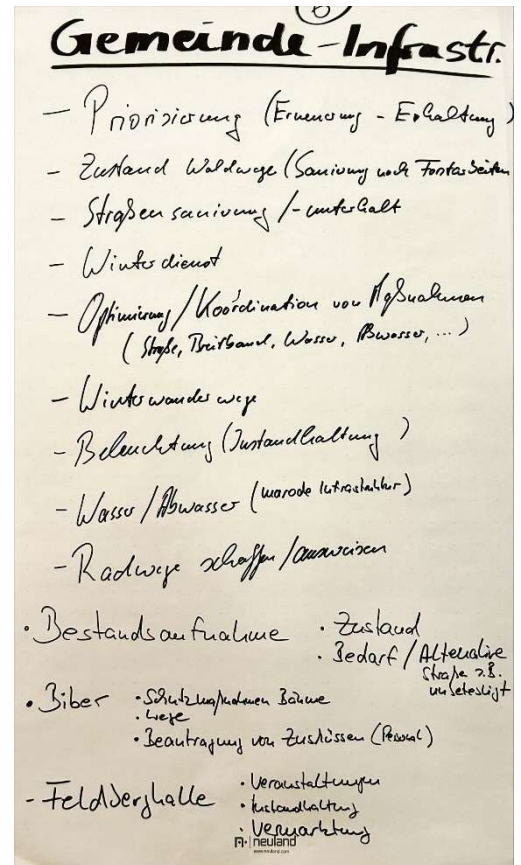 6
Gemeinde-Infrastr.
- Priorisierung (Erneuerung - Erhaltung)
- Zustand Waldwege (Sanierung nach Forstarbeiten
- Straßensanierung /-unterhalt
- Winterdienst
- Optimierung / Koordination von Maßnahmen
( Straße, Breitband, Wasser, Abwasser, ... )
- Winterwanderwege
- Beleuchtung (Instandhaltung )
- Wasser / Abwasser (marode Infrastruktur)
- Radwege schaffen / ausweisen
• Bestandsaufnahme • Zustand
• Bedarf / Alternative
Straße z.B.
unbefestigt
• Biber • Schutzmaßnahmen Bäume
• Wege
• Beantragung von Zuschüssen (Personal)
- Feldberghalle • Veranstaltungen
• Instandhaltung
• Vermarktung
neuland
www.neuland.com